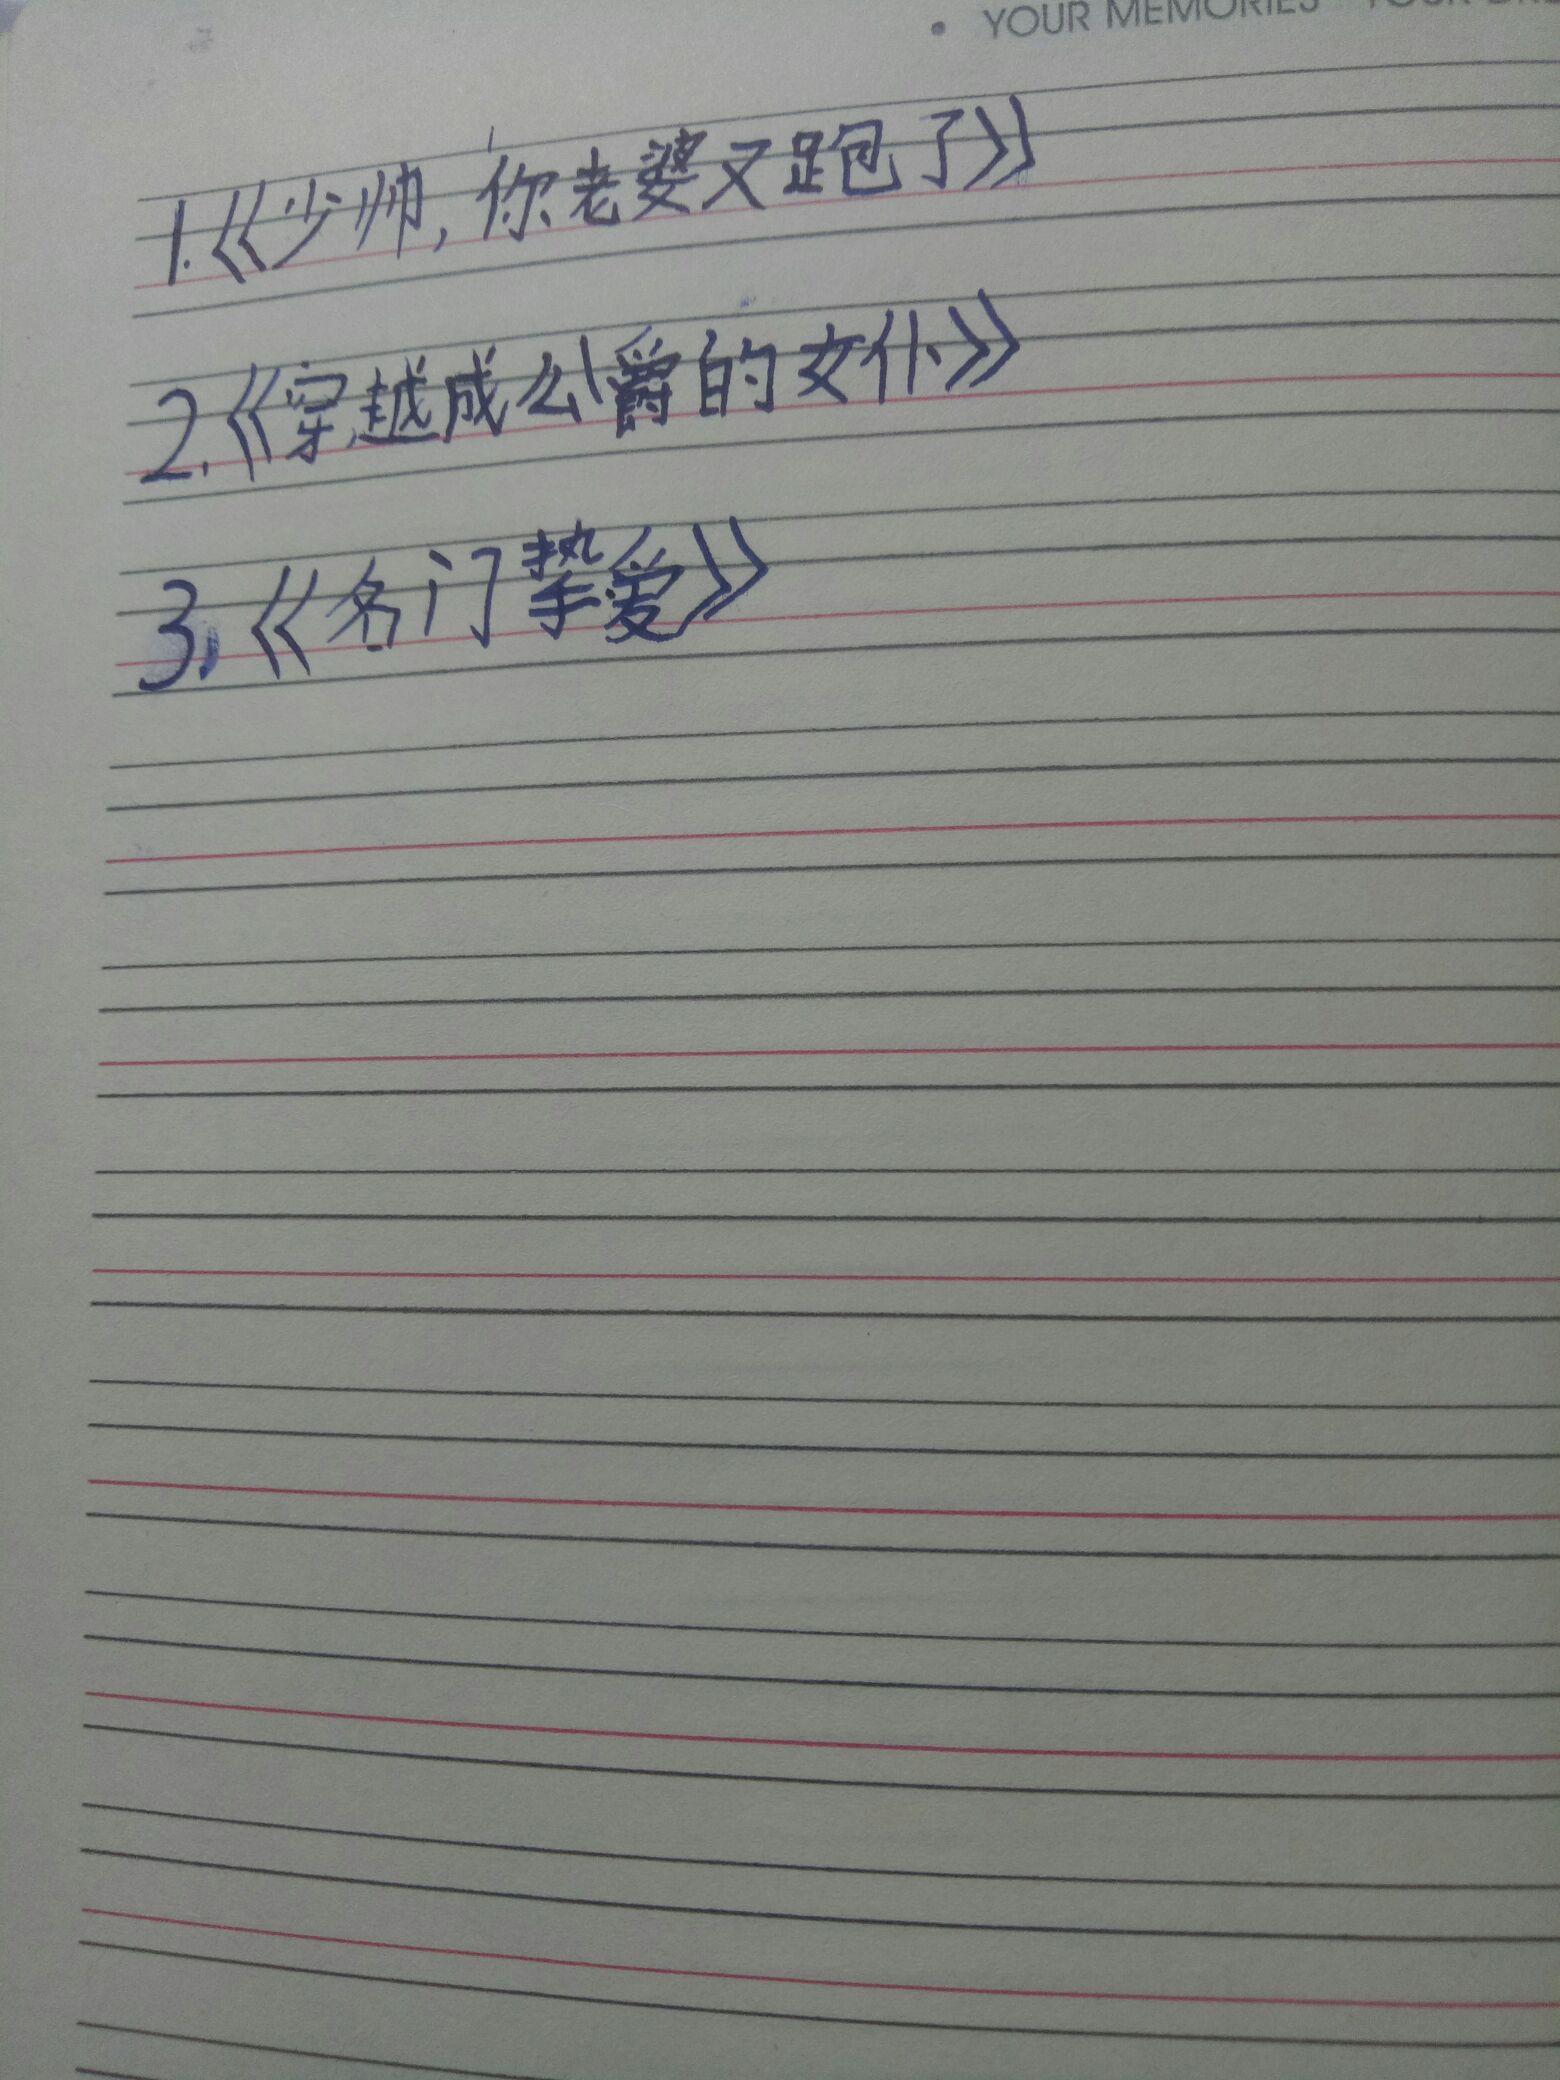 • YOUR MEMORIES
1.《少帅,你老婆又跑了》
2.《穿越成公爵的女仆》
3.《名门挚爱》